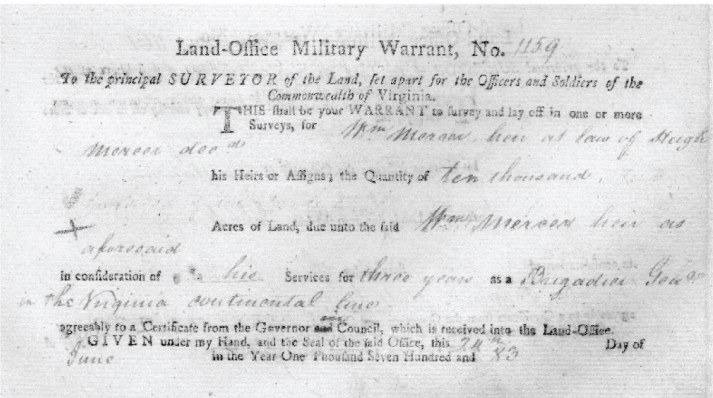 Land-Office Military Warrant, No. 1159
To the principal SURVEYOR of the Land, set apart for the Officers and Soldiers of the
Commonwealth of Virginia.
THIS shall be your WARRANT to survey and lay off in one or more
Surveys, for Wm Mercer heir at law of Hugh
Mercer decd
his Heirs or Assigns, the Quantity of ten thousand
Acres of Land, due unto the said Wm Mercer heir as
aforesaid
in consideration of his Services for three years as a Brigadier Genl
in the Virginia continental line
agreeably to a Certificate from the Governor and Council, which is received into the Land-Office.
GIVEN under my Hand, and the Seal of the said Office, this 24th Day of
June in the Year One Thousand Seven Hundred and 83